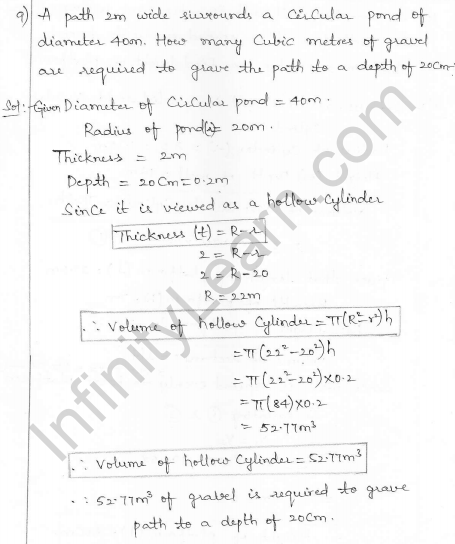 9) A path 2m wide surrounds a Circular pond of
diameter 40m. How many Cubic metres of gravel
are required to grave the path to a depth of 20Cm.
Sol:- Given Diameter of Circular pond = 40m.
Radius of pond(r)= 20m.
Thickness = 2m
Depth = 20Cm=0.2m
Since it is viewed as a hollow Cylinder
Thickness (t) = R-r
2 = R-r
2 = R-20
R = 22m
∴ Volume of hollow Cylinder = π(R²-r²)h
= π(22²-20²)h
= π(22²-20²)×0.2
= π(84)×0.2
= 52.77m³
∴ Volume of hollow Cylinder = 52.77m³
∴ 52.77m³ of gravel is required to grave
path to a depth of 20Cm.
InfinityLearn.com